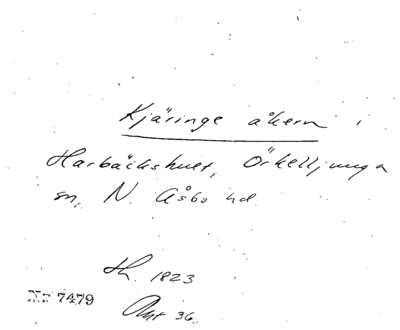 Kjäringe åkern i
Harbäckshult, Örkelljunga
sn, N. Åsbo hd.
th. 1823
Nr 7479
Akt 36.